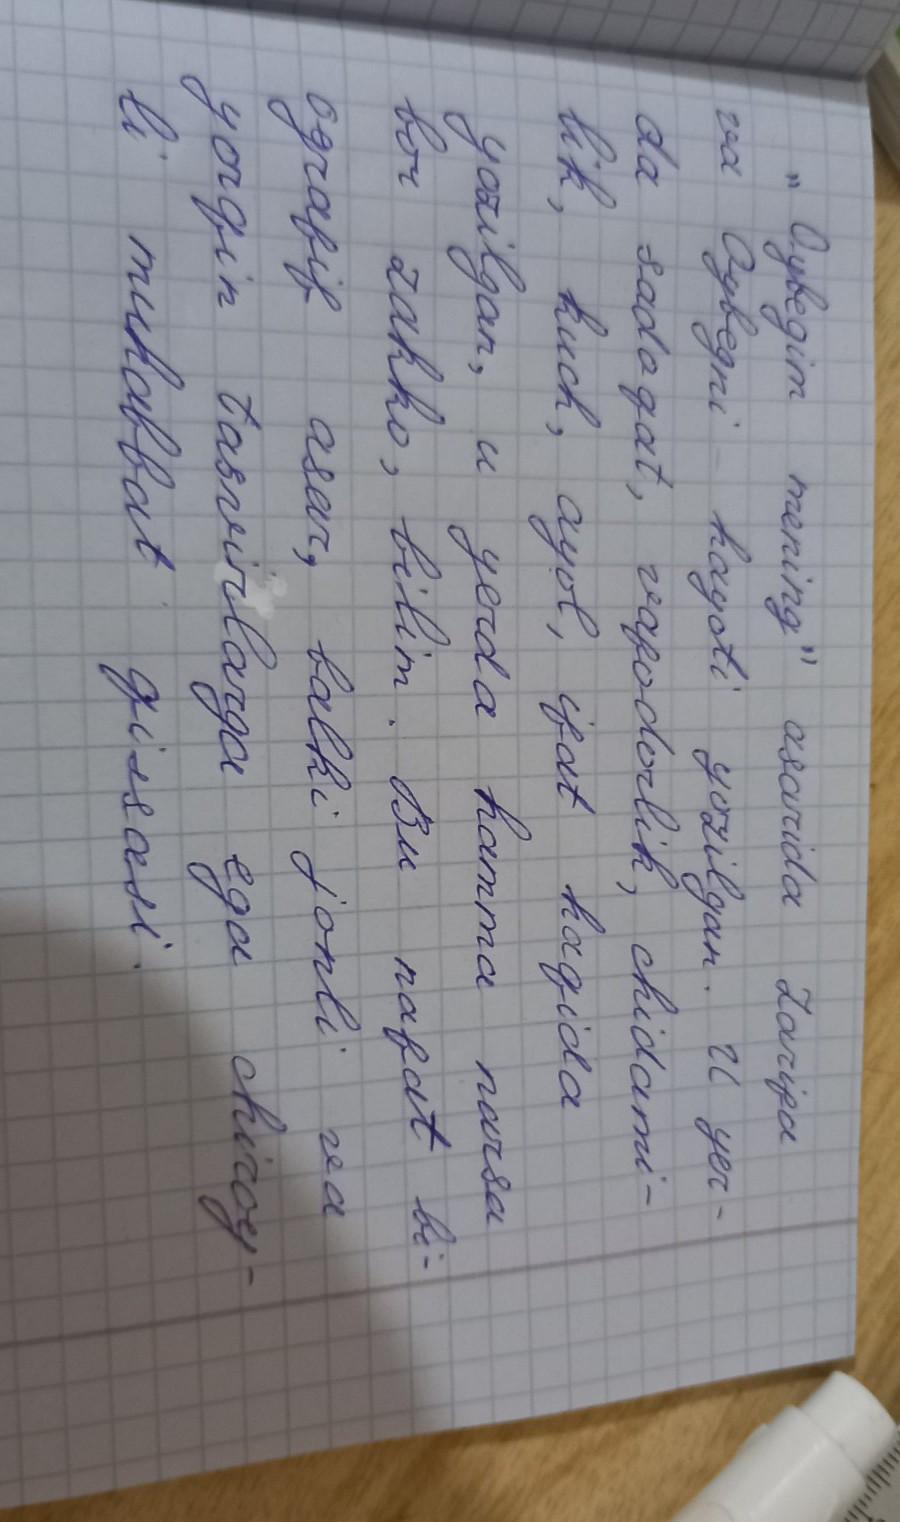 "Oybegim mening" asarida Zarifa
va Oybegni hayoti yozilgan. U yer-
da sadoqat, vafodorlik, chidamli-
lik, kuch, ayol, ifat haqida
yozilgan, u yerda hamma narsa
bor zakko, bilim. Bu nafaqat bi-
ografik asar, balki jonli va
yorqin tasvirlarga ega chiroy-
li muhabbat qissasi.